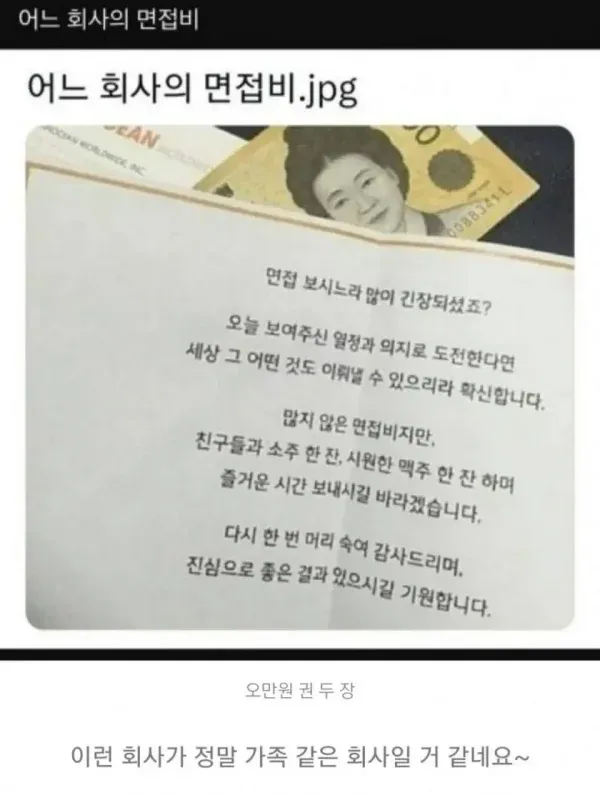 어느 회사의 면접비
어느 회사의 면접비.jpg
EAN WORLDWIDE
OCEAN WORLDWIDE, INC.
00
0088341L
면접 보시느라 많이 긴장되셨죠?
오늘 보여주신 열정과 의지로 도전한다면
세상 그 어떤 것도 이뤄낼 수 있으리라 확신합니다.
많지 않은 면접비지만,
친구들과 소주 한 잔, 시원한 맥주 한 잔 하며
즐거운 시간 보내시길 바라겠습니다.
다시 한 번 머리 숙여 감사드리며,
진심으로 좋은 결과 있으시길 기원합니다.
오만원 권 두 장
이런 회사가 정말 가족 같은 회사일 거 같네요~